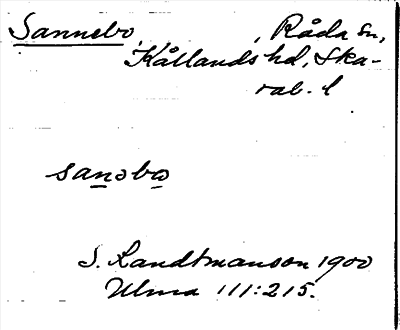 Sannebo, Råda sn,
Kållands hd, Ska-
rab. l
sanəbo
S. Landtmanson 1900
Ulma 111:215.